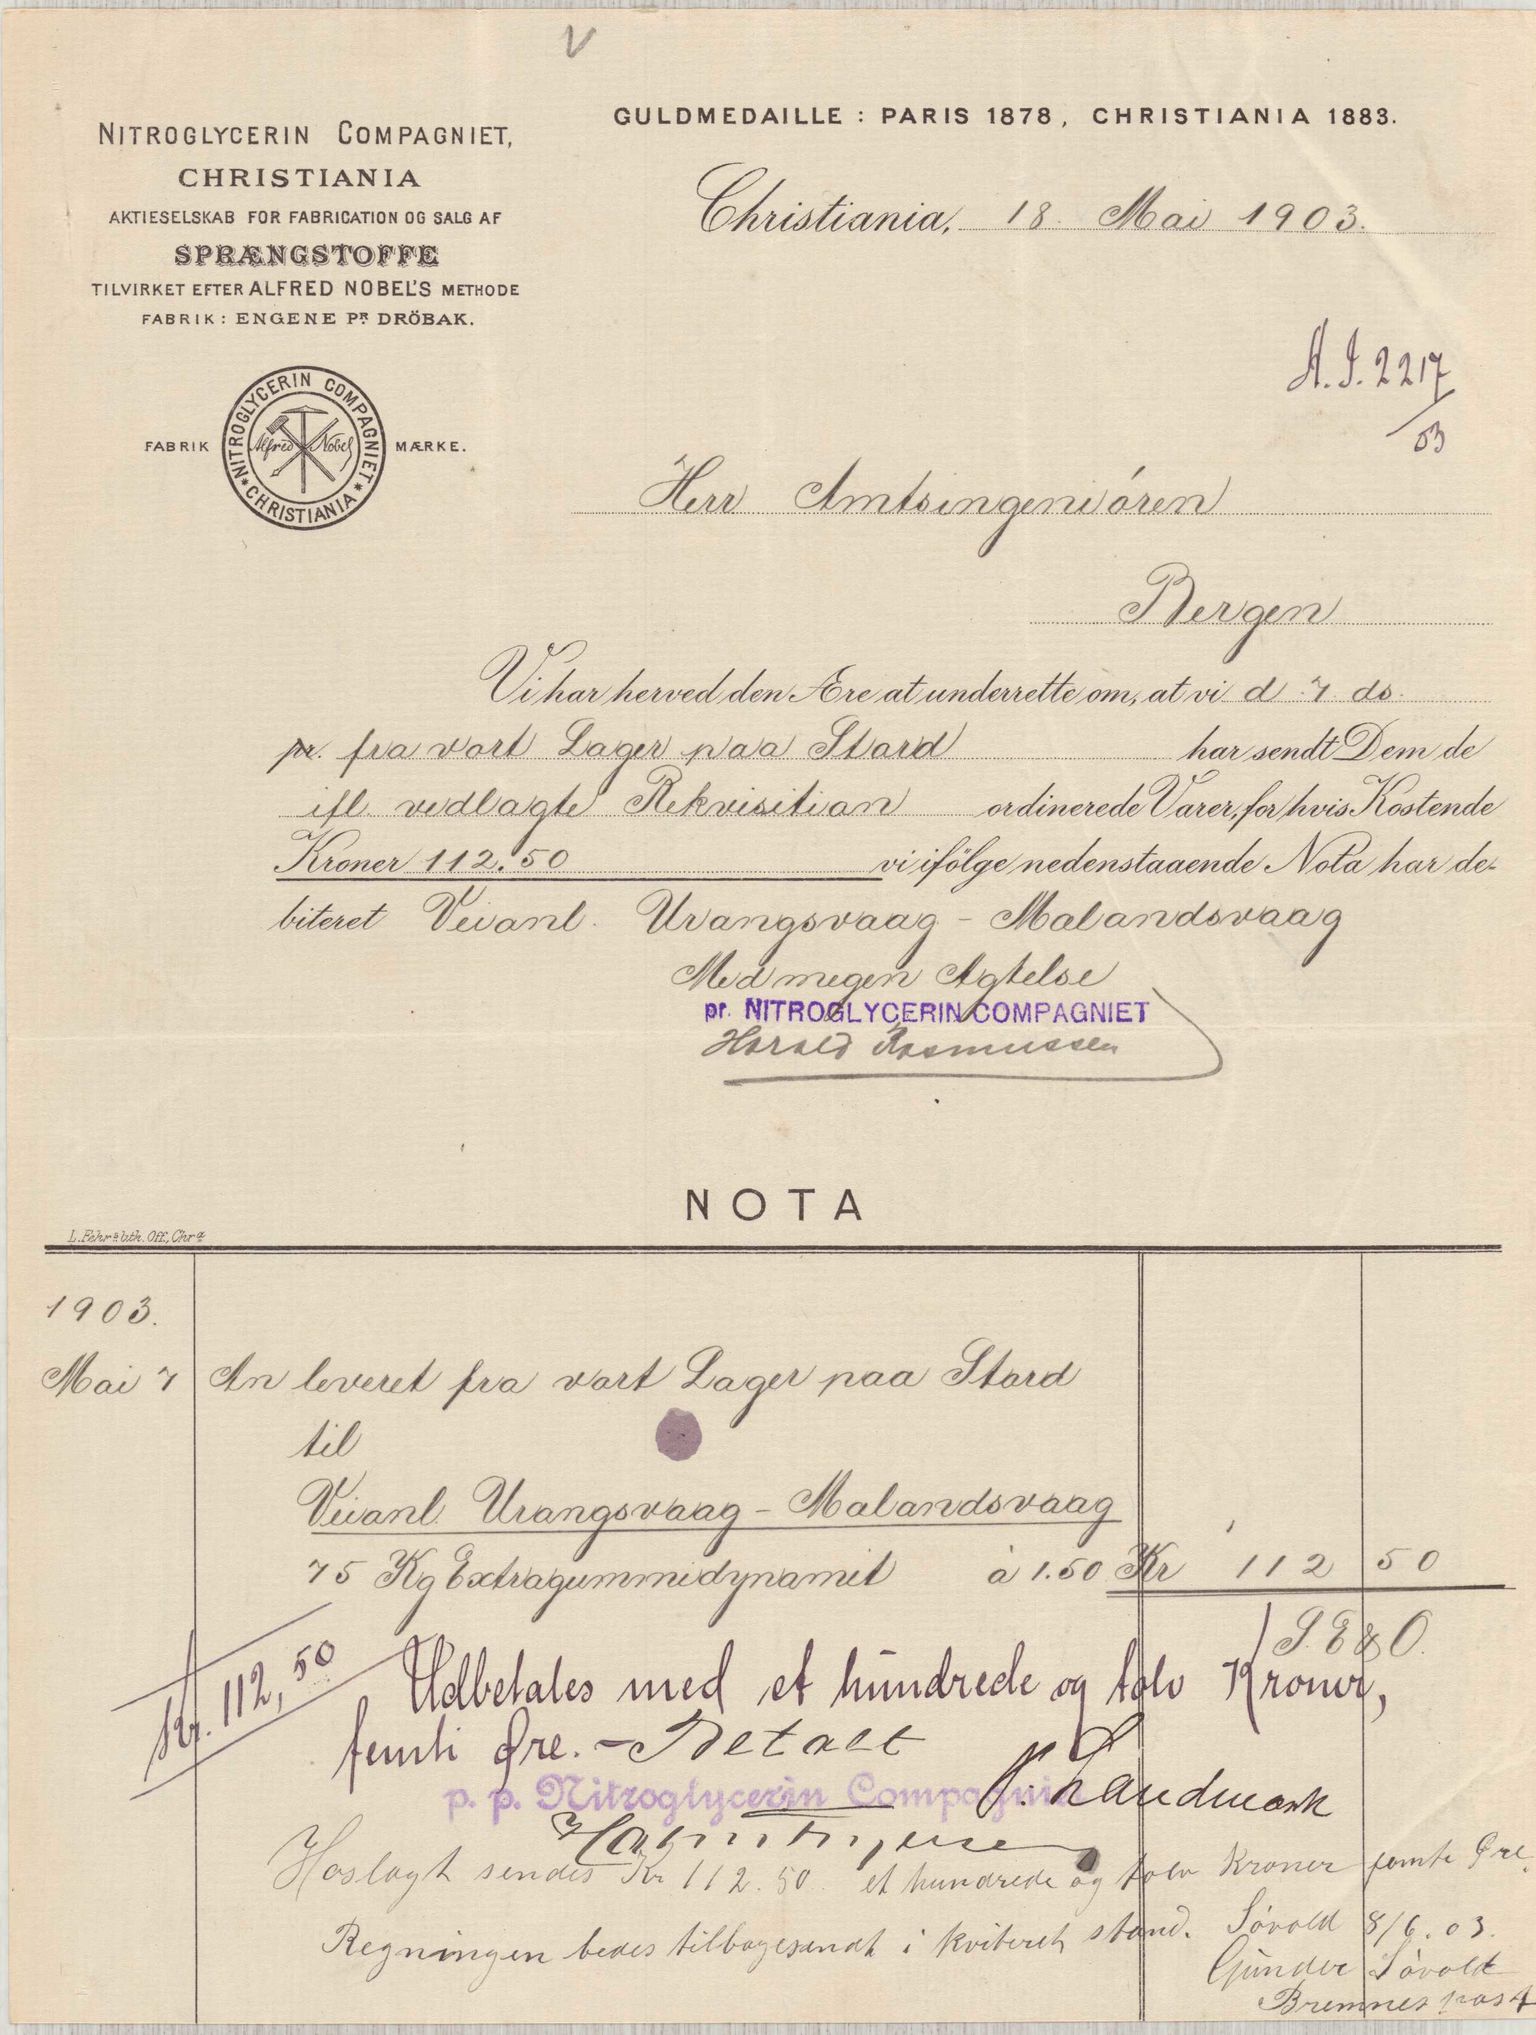 V
GULDMEDAILLE : PARIS 1878, CHRISTIANIA 1883.
NITROGLYCERIN COMPAGNIET,
CHRISTIANIA
AKTIESELSKAB FOR FABRICATION OG SALG AF
SPRÆNGSTOFFE
TILVIRKET EFTER ALFRED NOBEL'S METHODE
FABRIK : ENGENE PR DRÖBAK.
FABRIK MÆRKE.
NITROGLYCERIN COMPAGNIET
* CHRISTIANIA *
Alfred Nobel
Christiania, 18. Mai 1903.
A. J. 2217/03
Herr Amtsingeniören
Bergen
Vi har herved den Ære at underrette om, at vi d 7 ds.
pr. fra vort Lager paa Stord har sendt Dem de
ifl. vedlagte Rekvisition ordinerede Varer, for hvis Kostende
Kroner 112.50 vi ifölge nedenstaaende Nota har de-
biteret Veianl. Urangsvaag - Malandsvaag
Med megen Agtelse
pr. NITROGLYCERIN COMPAGNIET
Harald Rasmussen
NOTA
L. Fehr's lith. Off., Chra
1903.
Mai 7 An leveret fra vort Lager paa Stord
til
Veianl. Urangsvaag - Malandsvaag
75 Kg Extragummidynamit à 1.50 Kr 112 50
S. E & O.
Kr. 112,50
Udbetales med et hundrede og tolv Kroner,
femti Øre. - Betalt
p. p. Nitroglycerin Compagnie
Landmark
Hoslagt sendes Kr 112.50 et hundrede og tolv Kroner femti Øre.
Regningen bedes tilbagesendt i kviteret stand. Søvold 8/6.03.
Gunder Søvold
Bremnes post